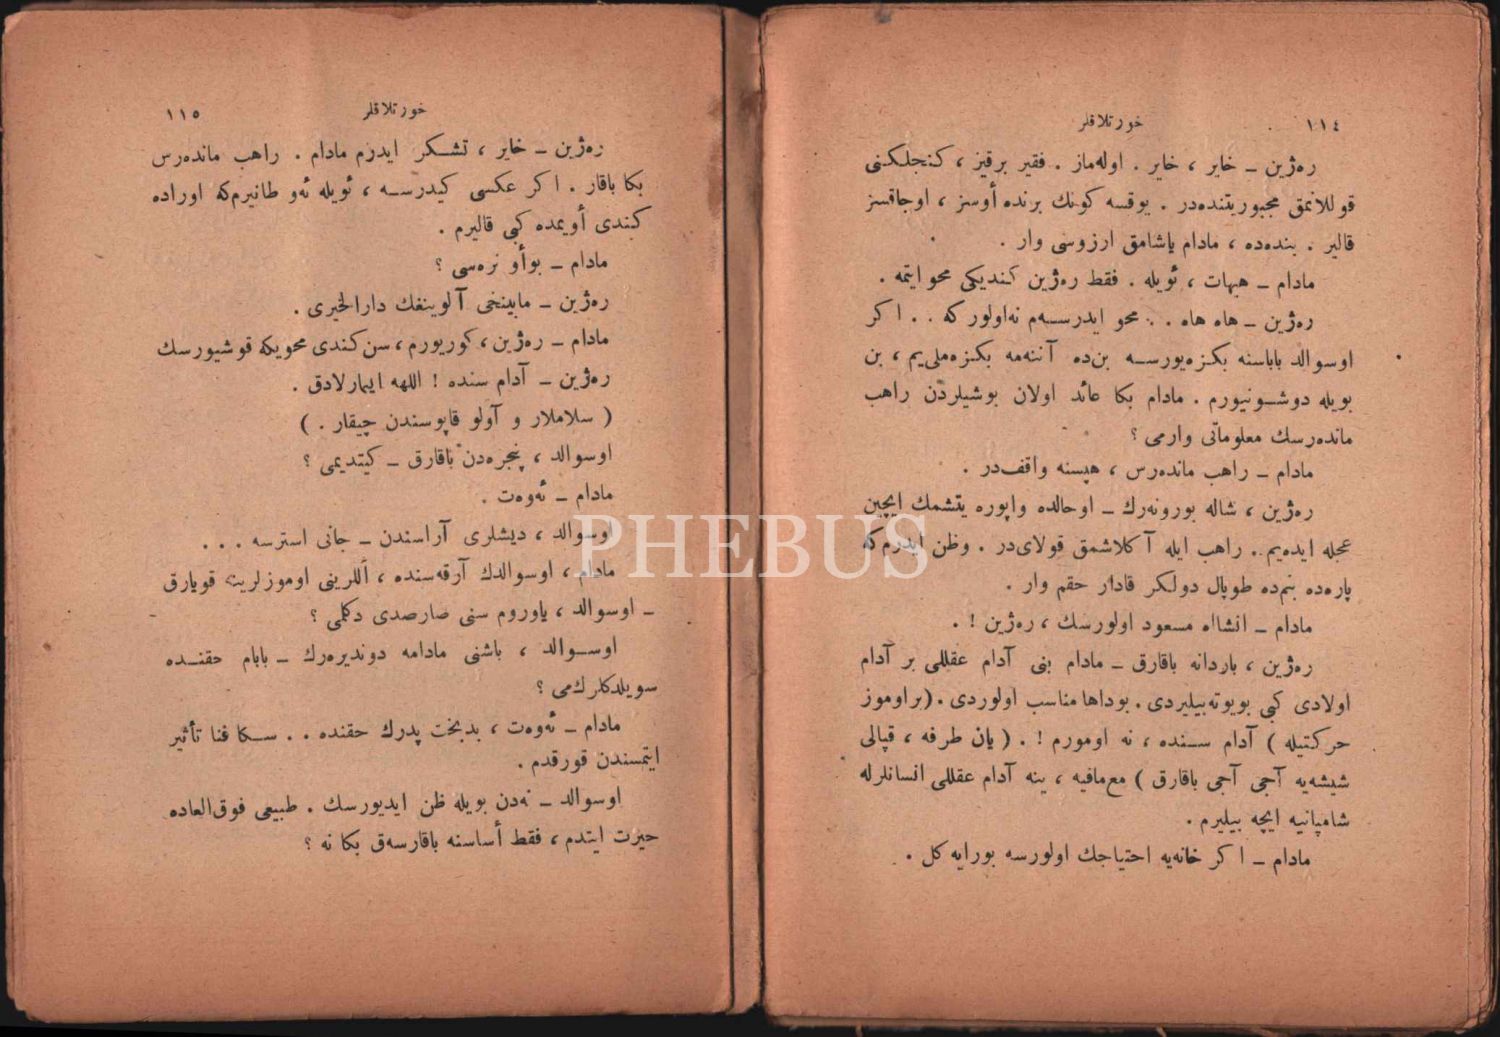 ١١٤
خورتلاقلر
ره‌ژین ــ خایر ، خایر . اوله‌ماز . فقیر برقیز ، کنجلکنی
قوللانمق مجبوریتنده‌در . یوقسه کونك برنده أوسز ، اوجاقسز
قالیر . بنده‌ده ، مادام یاشامق ارزوسی وار .
مادام ــ هیهات ، ئویله . فقط ره‌ژین کندیکی محو ایتمه .
ره‌ژین ــ هاه هاه . . محو ایدرسه‌م نه‌اولور که . . اکر
اوسوالد باباسنه بکزه‌یورسه بن‌ده آننه‌مه بکزه‌ملی‌یم ، بن
بویله دوشونیورم . مادام بکا عائد اولان بوشیلردن راهب
مانده‌رسك معلوماتی وارمی ؟
مادام ــ راهب مانده‌رس ، هپسنه واقف‌در .
ره‌ژین ، شاله بورونه‌رك ــ اوحالده واپوره یتشمك ایچین
عجله ایده‌یم . راهب ایله آکلاشمق قولای‌در . وظن ایدرم‌که
پاره‌ده بنم‌ده طوپال دولکر قادار حقم وار .
مادام ــ انشاالله مسعود اولورسك ، ره‌ژین ! .
ره‌ژین ، باردانه باقارق ــ مادام بنی آدام عقللی بر آدام
اولادی کبی بویوته‌بیلیردی . بوداها مناسب اولوردی . (براوموز
حرکتیله ) آدام سنده ، نه اومورم ! . ( یان طرفه ، قپالی
شیشه‌یه آجی آجی باقارق ) مع‌مافیه ، ینه آدام عقللی انسانلرله
شامپانیه ایچه بیلیرم .
مادام ــ اکر خانه‌یه احتیاجك اولورسه بورایه کل .
١١٥
خورتلاقلر
ره‌ژین ــ خایر ، تشکر ایدرم مادام . راهب مانده‌رس
بکا باقار . اکر عکسی کیدرسه ، ئویله ئه‌و طانیرم‌که اوراده
کندی أویمده کبی قالیرم .
مادام ــ بوأو نره‌سی ؟
ره‌ژین ــ مابینخی آلوینغك دارالخیری .
مادام ــ ره‌ژین ، کوریورم ، سن کندی محویکه قوشیورسك
ره‌ژین ــ آدام سنده ! اللهه ایمارلادق .
( سلاملار و آولو قاپوسندن چیقار . )
اوسوالد ، پنجره‌دن باقارق ــ کیتدیمی ؟
مادام ــ ئه‌وه‌ت .
اوسوالد ، دیشلری آراسندن ــ جانی استرسه . . .
مادام ، اوسوالدك آرقه‌سنده ، أللرینی اوموزلرینه قویارق
ــ اوسوالد ، یاوروم سنی صارصدی دکلمی ؟
اوسوالد ، باشنی مادامه دوندیره‌رك ــ بابام حقنده
سویلدکلرك‌می ؟
مادام ــ ئه‌وه‌ت ، بدبخت پدرك حقنده . . سکا فنا تأثیر
ایتمسندن قورقدم .
اوسوالد ــ نه‌دن بویله ظن ایدیورسك . طبیعی فوق‌العاده
حیرت ایتدم ، فقط أساسنه باقارسه‌ق بکا نه ؟
PHEBUS